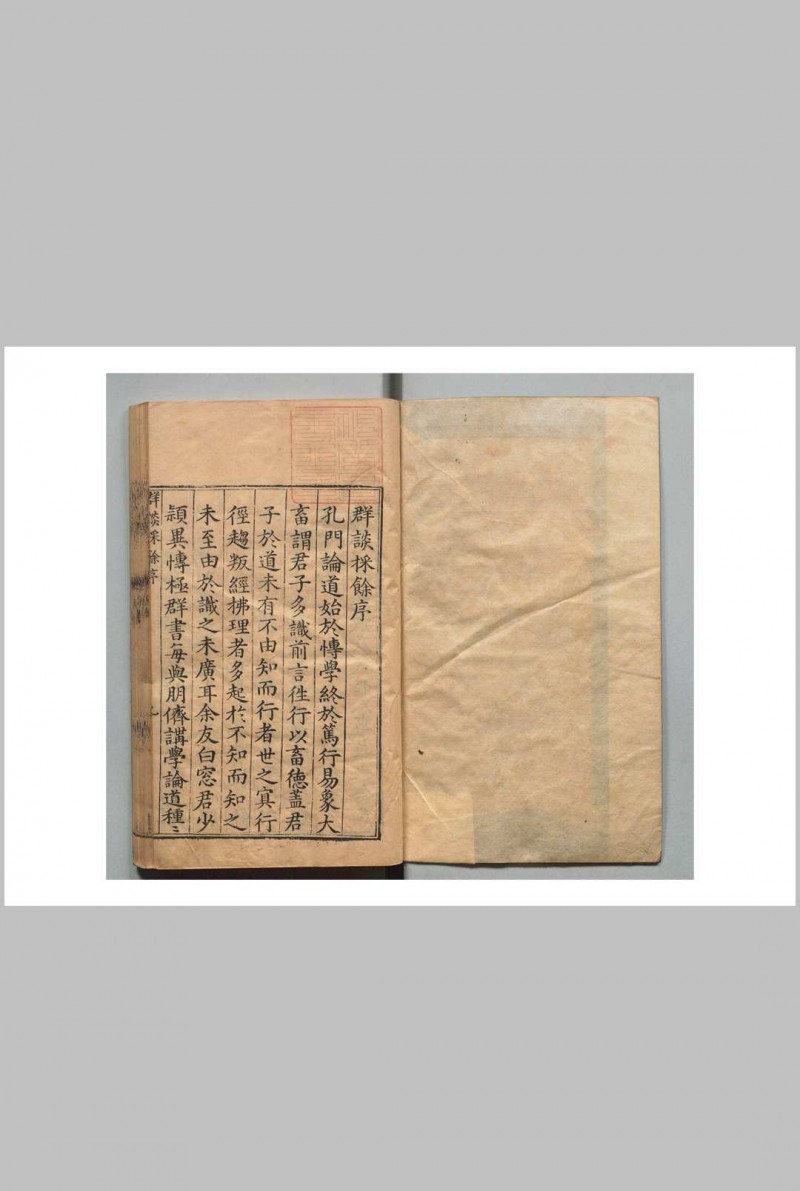 群談採餘序
孔門論道始於博學終於篤行易象大
畜謂君子多識前言徃行以畜德蓋君
子於道未有不由知而行者世之寘行
徑趨叛經拂理者多起於不知而知之
未至由於識之未廣耳余友白窓君少
頴異博極群書每與朋儕講學論道種〻
群談採餘序